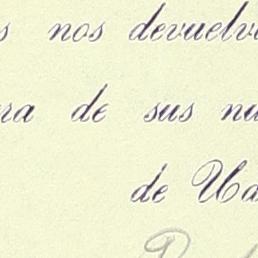 s nos devuelv
ra de sus nu
de Ua